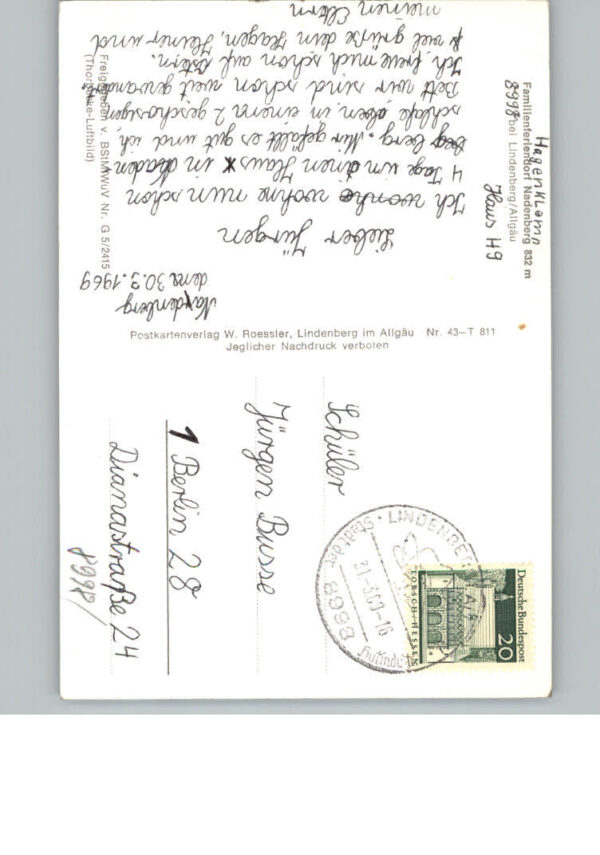 Familienferiendorf Nadenberg 832 m
8998 bei Lindenberg/Allgäu
Hagen Klamp
Haus H9
Nadenberg
den 30.3.1969
Lieber Jürgen
Ich wohne nun schon
4 Tage in einen Haus in Naden
berg. Mir gefällt es gut und ich,
schlafe oben in einem 2 geschossigen
Bett wir sind schon weit gewandert.
Ich freue mich schon auf Ostern.
viel grüße dein Hagen, Heiner und
meinen Eltern
Freigegeben v. BStMWuV Nr. G 5/2415
(Thorbecke-Luftbild)
Postkartenverlag W. Roessler, Lindenberg im Allgäu Nr. 43–T 811
Jeglicher Nachdruck verboten
Schüler
Jürgen Busse
1 Berlin 28
Dianastraße 24
8998/
LINDENBERG
8998
31.-3.69-16
Deutsche Bundespost
20
LORSCH · HESSEN